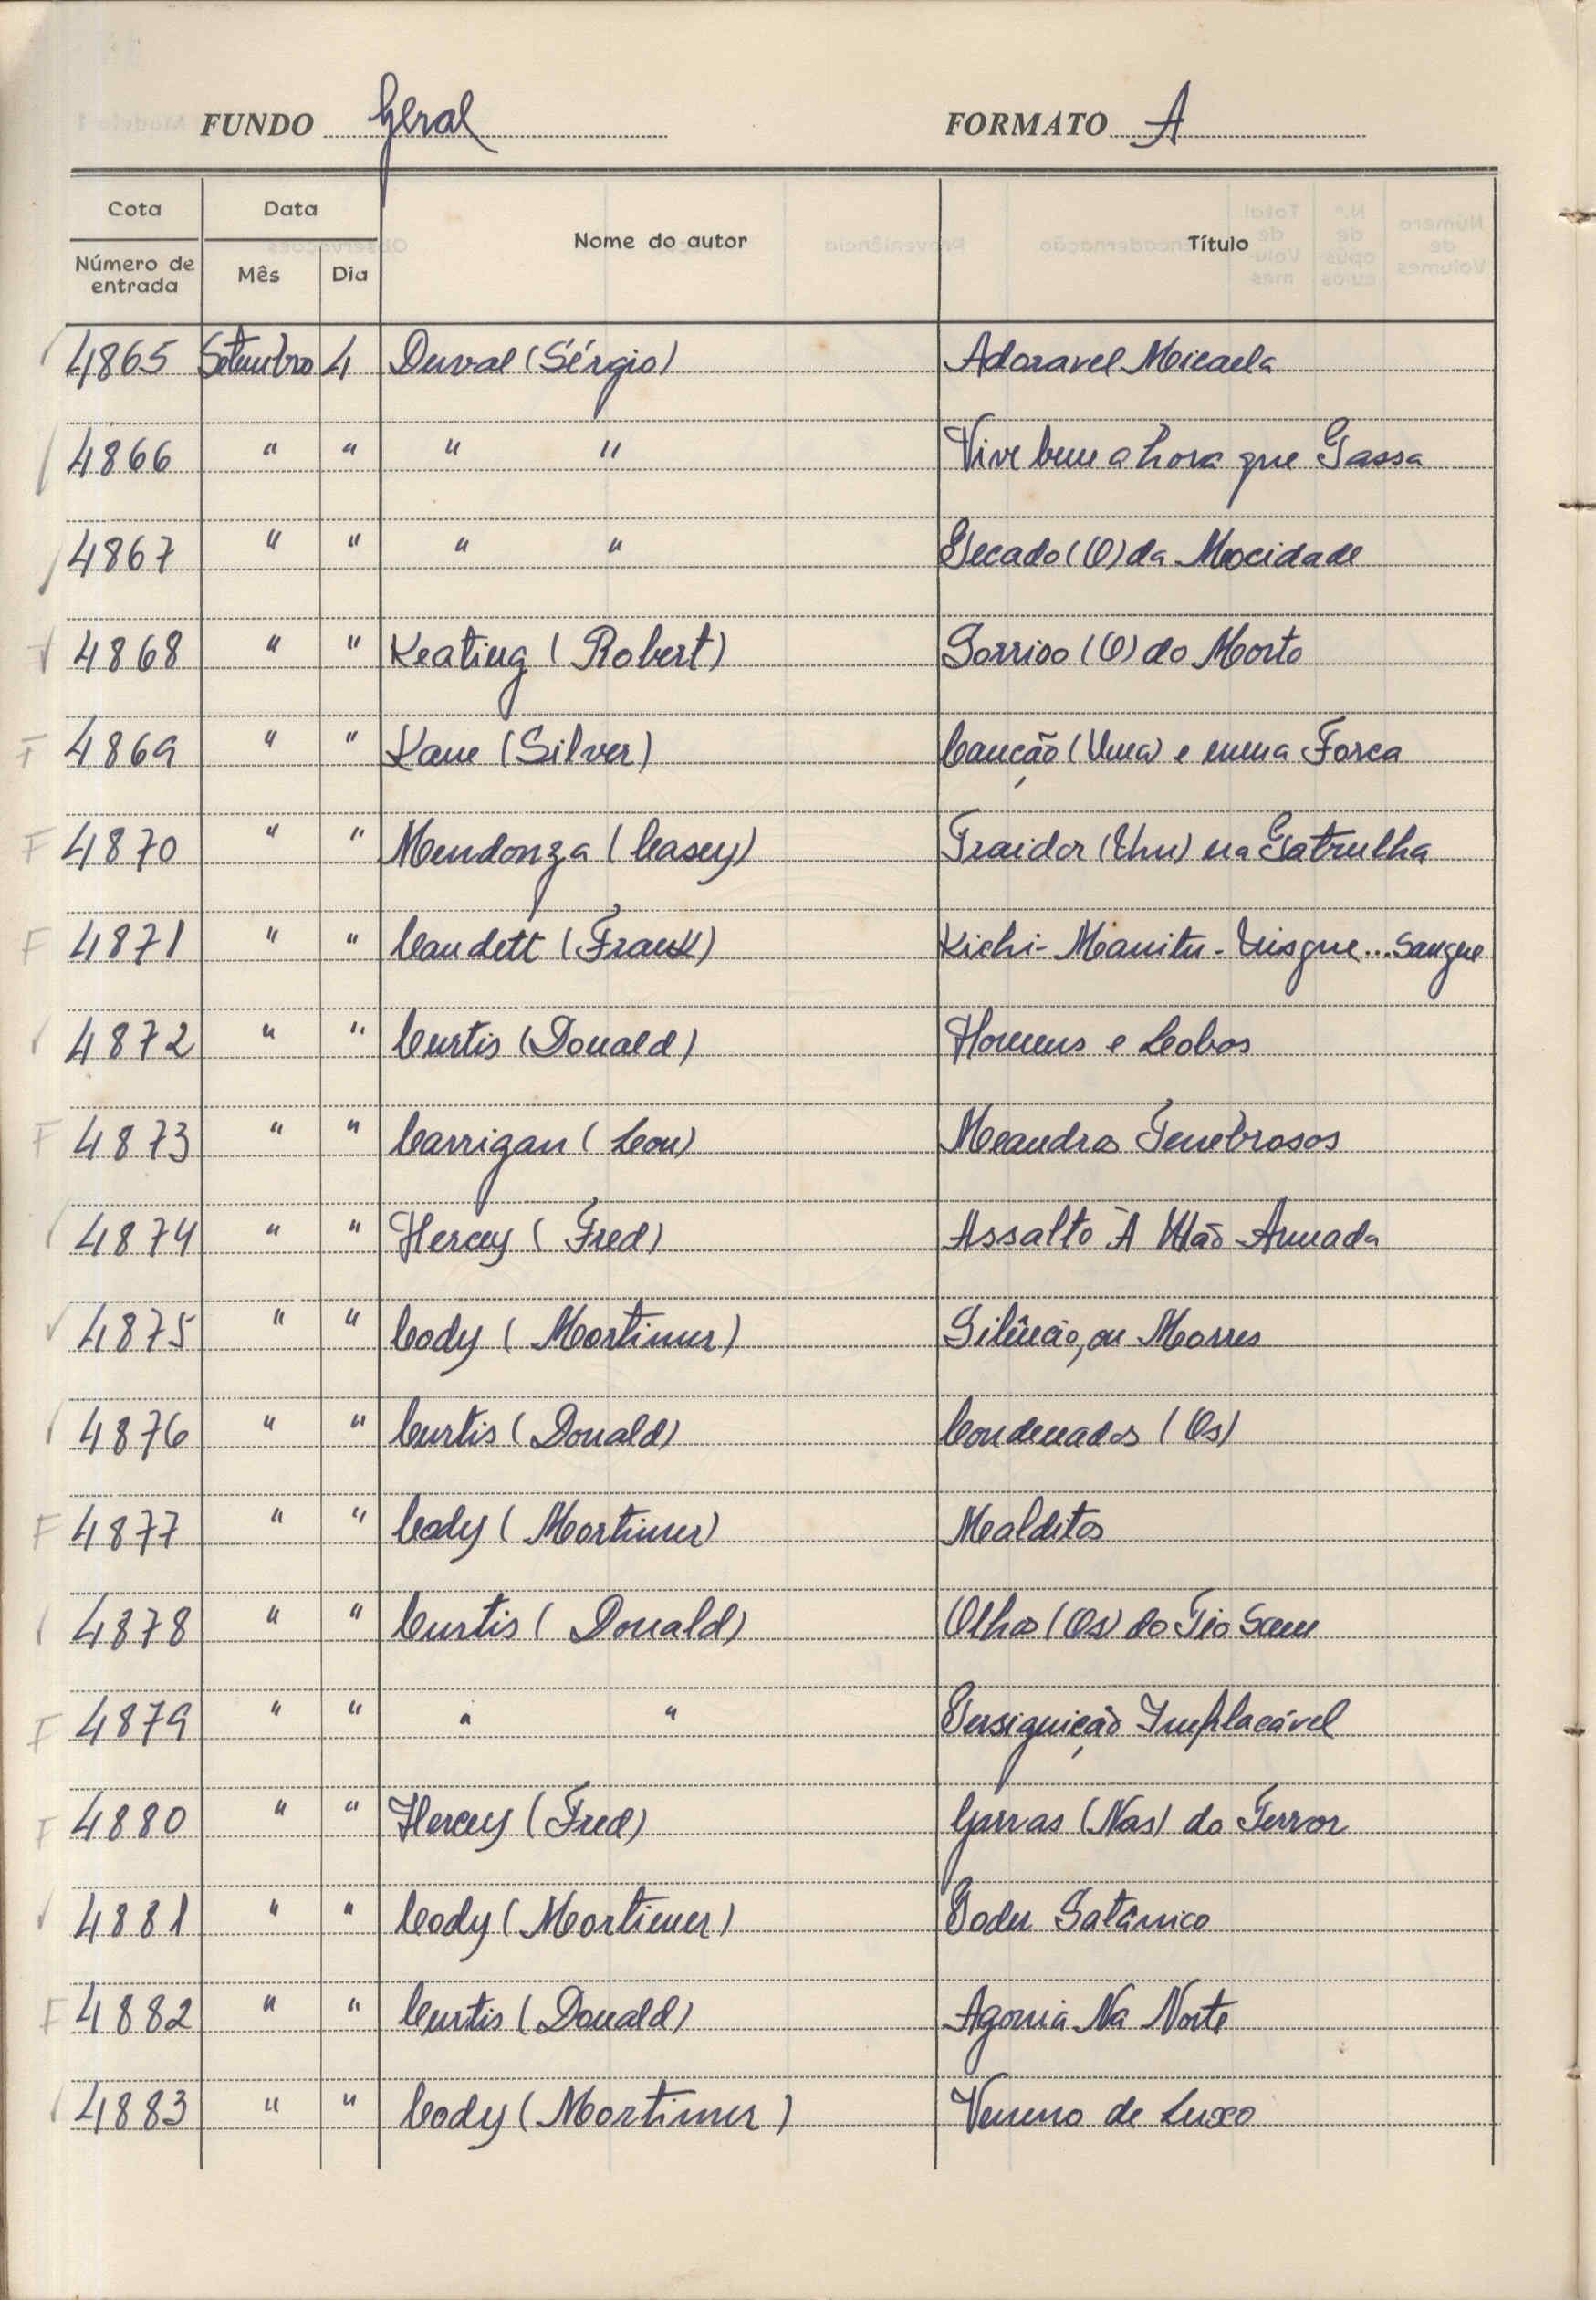 FUNDO Geral FORMATO A
Cota Data Nome do autor Título
Número de entrada Mês Dia
✓ 4865 Setembro 4 Duval (Sérgio) Adoravel Micaela
✓ 4866 " " " " Vive bem a hora que Passa
✓ 4867 " " " " Pecado (O) da Mocidade
4868 " " Keating (Robert) Sorriso (O) do Morto
F 4869 " " Kane (Silver) Canção (Uma) e numa Forca
F 4870 " " Mendonza (Casey) Traidor (Um) na Patrulha
F 4871 " " Caudett (Frank) Kichi-Manitu-Uisque...Sangue
✓ 4872 " " Curtis (Donald) Homens e Lobos
F 4873 " " Carrigan (Lou) Meandros Tenebrosos
✓ 4874 " " Hercey (Fred) Assalto À Mão Armada
✓ 4875 " " Cody (Mortimer) Silêncio, ou Morres
✓ 4876 " " Curtis (Donald) Condenados (Os)
F 4877 " " Cody (Mortimer) Malditos
✓ 4878 " " Curtis (Donald) Olhos (Os) do Tio Sam
F 4879 " " " " Persiguição Implacável
F 4880 " " Hercey (Fred) Garras (Nas) do Terror
✓ 4881 " " Cody (Mortimer) Poder Satânico
F 4882 " " Curtis (Donald) Agonia Na Noite
✓ 4883 " " Cody (Mortimer) Veneno de Luxo